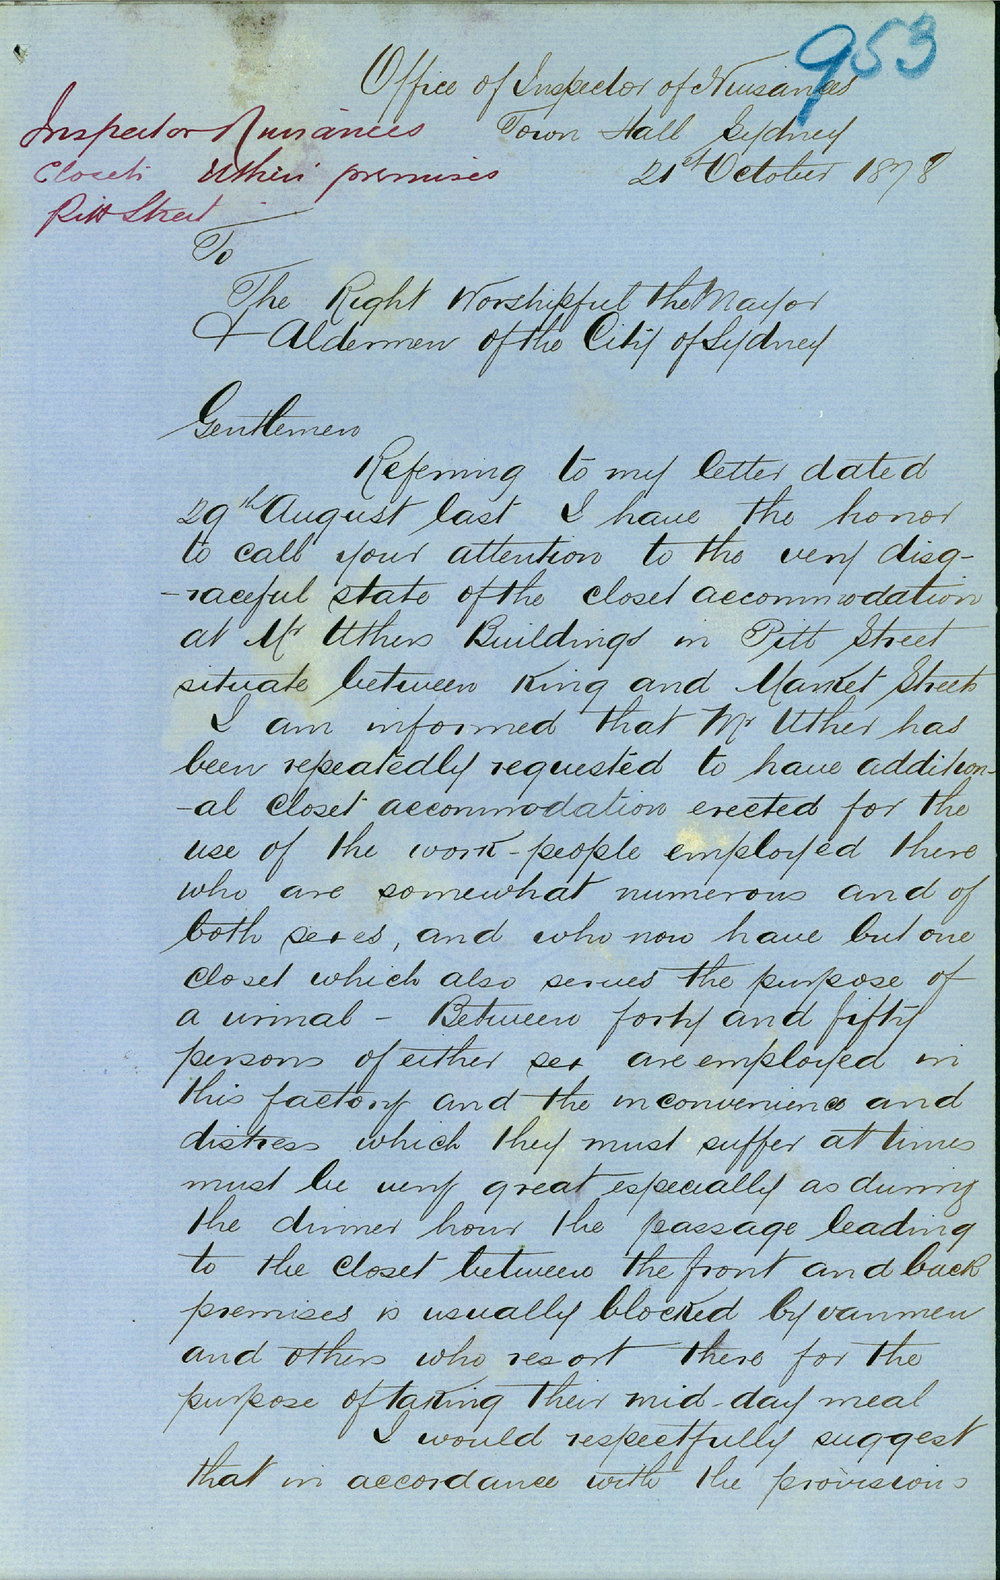 953
Office of Inspector of Nuisances
Inspector Nuisances
Town Hall Sydney
Closets Uther's premises
21st October 1878
Pitt Street
To
The Right Worshipful the Mayor
& Aldermen of the City of Sydney
Gentlemen
Referring to my letter dated
29th August last I have the honor
to call your attention to the very disg-
-raceful state of the closet accommodation
at Mr Uthers Buildings in Pitt Street
situate between King and Market Streets
I am informed that Mr Uther has
been repeatedly requested to have addition-
-al closet accommodation erected for the
use of the work-people employed there
who are somewhat numerous and of
both sexes, and who now have but one
closet which also serves the purpose of
a urinal - Between forty and fifty
persons of either sex are employed in
this factory and the inconvenience and
distress which they must suffer at times
must be very great especially as during
the dinner hour the passage leading
to the closet between the front and back
premises is usually blocked by vanmen
and others who resort there for the
purpose of taking their mid-day meal
I would respectfully suggest
that in accordance with the provisions